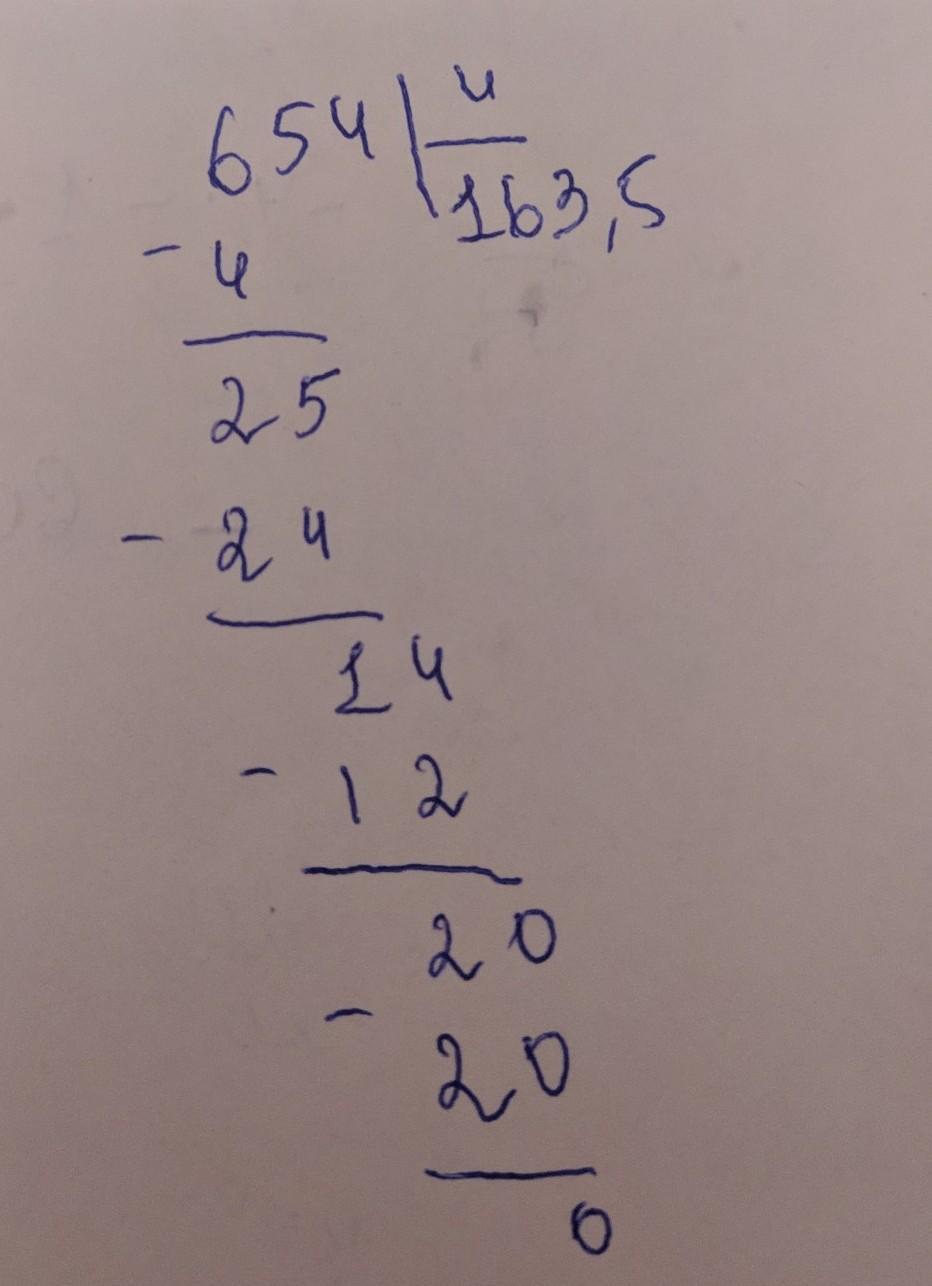 654 4
163,5
- 4
25
- 24
14
- 12
20
- 20
0